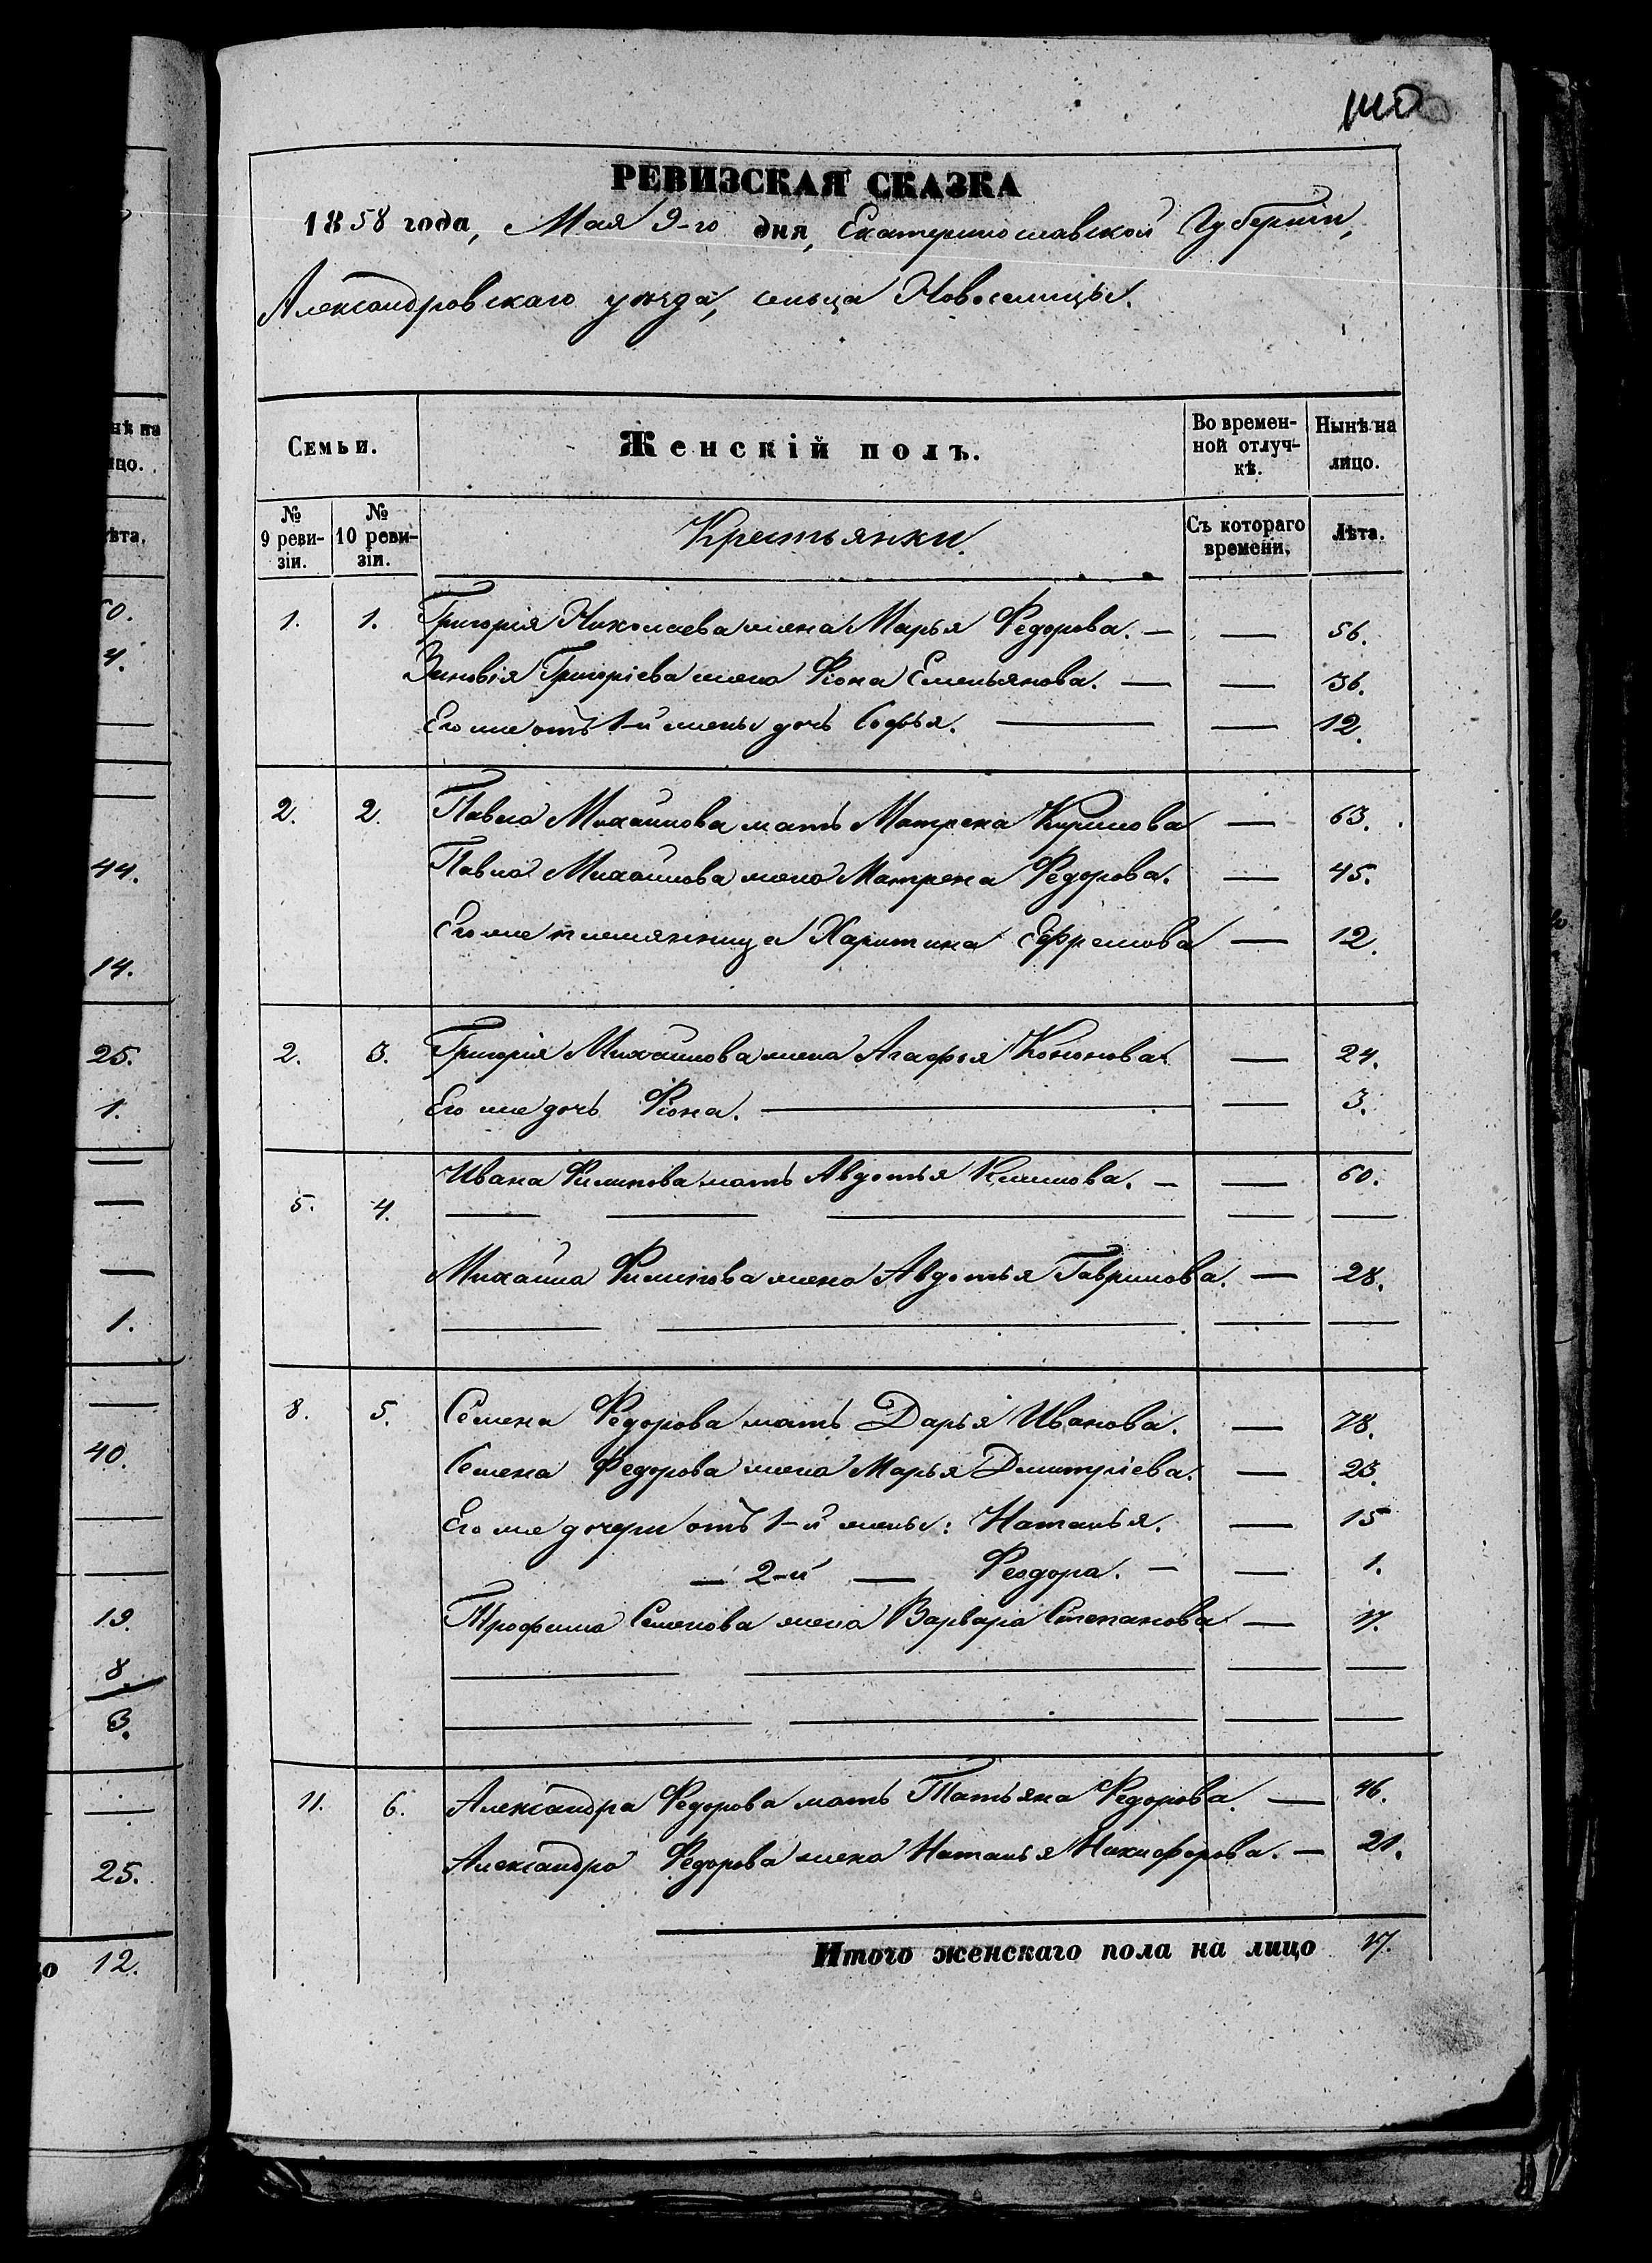 110
РЕВИЗСКАЯ СКАЗКА
1858 года, Мая 9-го дня, Екатеринославской Губерніи,
Александровскаго уѣзда, сельца Новоселицы.
нѣ на
лицо.
Лѣта.
4.
44.
14.
25.
1.
1.
40.
19.
8.
3.
25.
12.
Семьи. Женскій полъ. Во времен- Нынѣ на
ной отлуч- лицо.
кѣ.
№ № Крестьянки. Съ котораго Лѣта.
9 реви- 10 реви- времени.
зіи. зіи.
1. 1. Григорія Николаева жена Марья Федорова. — — 56.
Зиновія Григоріева жена Фіона Емельянова. — — 36.
Его же отъ 1-й жены дочь Софья. — — 12.
2. 2. Павла Михайлова мать Матрена Кирилова — 63.
Павла Михайлова жена Матрена Федорова. — 45.
Его же племянница Харитина Ефремова — 12.
2. 3. Григорія Михайлова жена Агафья Кононова. — 24.
Его же дочь Фіона. — — 3.
5. 4. Ивана Филипова мать Авдотья Климова. — — 60.
Михайла Филипова жена Авдотья Гаврилова. — 28.
8. 5. Семена Федорова мать Дарья Иванова. — 78.
Семена Федорова жена Марья Дмитріева. — 23.
Его же дочери отъ 1-й жены: Наталья. — 15
— 2-й — Феодора. — — 1.
Трофима Семенова жена Варвара Степанова — 17.
11. 6. Александра Федорова мать Татьяна Федорова. — 46.
Александра Федорова жена Наталья Никифорова. — 21.
Итого женскаго пола на лицо 17.